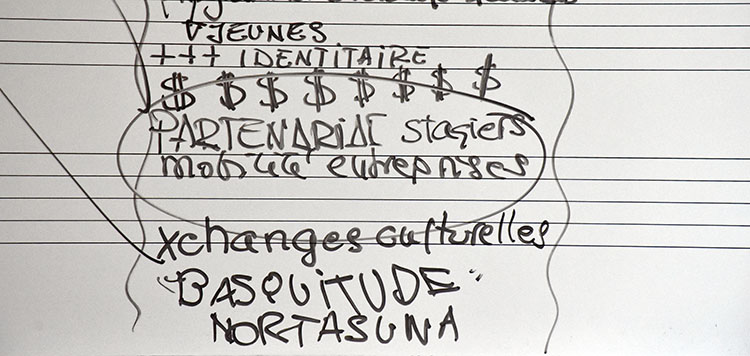 VJEUNES
+++ IDENTITAIRE
$ $ $ $ $ $ $ $
PARTENARIAT stagiers
mobilité entreprises
xchanges culturelles
"BASQUITUDE"
NORTASUNA